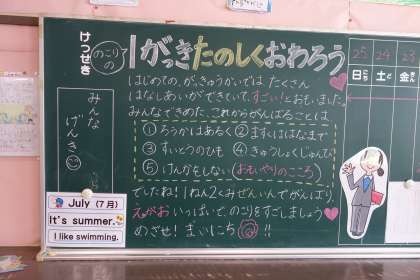 けっせき
みんな
げんき
のこりの
1がっきたのしくおわろう
はじめての、がっきゅうかいでは たくさん
はなしあいができていて、すごい!とおもいました。
みんなできめた、これからがんばることは
① ろうかはあるく ② ますくははなまで
③ すいとうのひも ④ きゅうしょくじゅんび
⑤ けんかをしない(おもいやりのこころ)
でていたね!1ねん2くみぜんいんでがんばり、
えがおいっぱいで、のこりをすごしましょう
めざせ!まいにち
!!
25 24 23
にち ど きん
日 土 金
July (7月)
it's summer.
I like swimming.